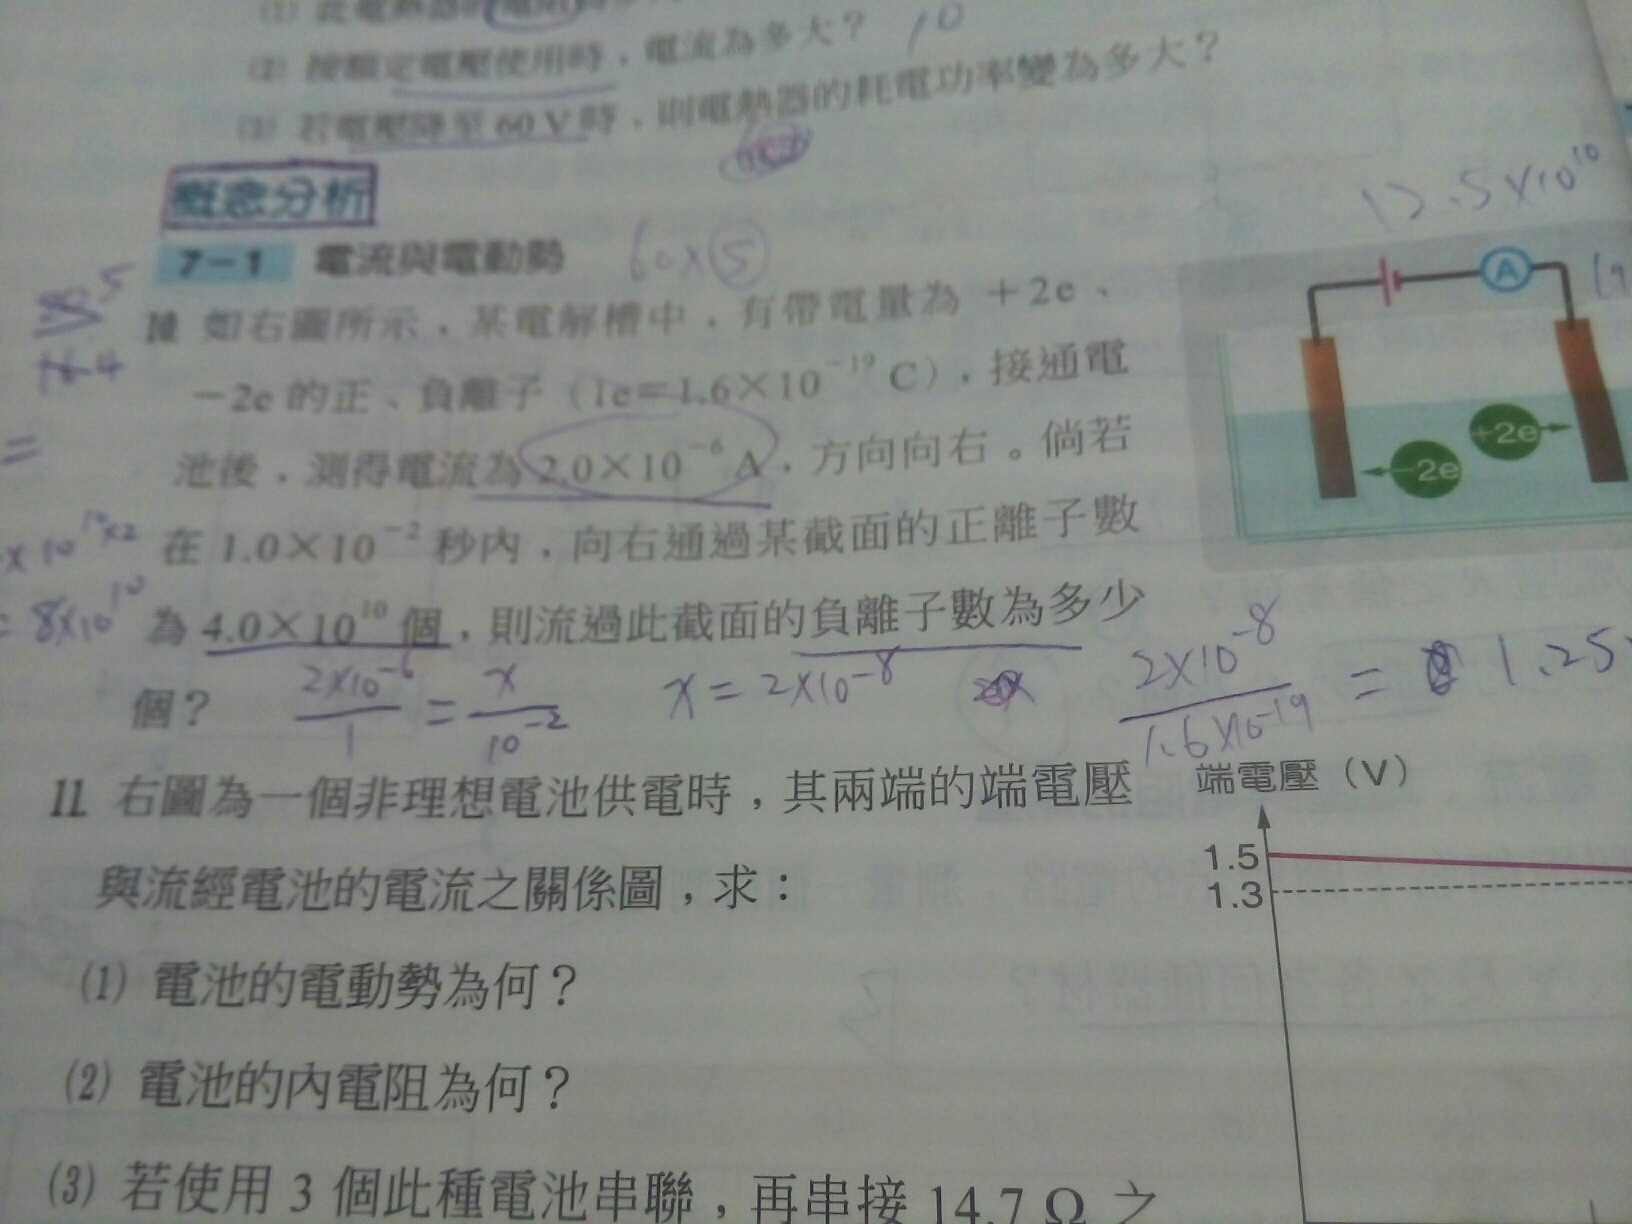 (2) 按額定電壓使用時，電流為多大？ 10
(3) 若電壓降至 60 V 時，則電熱器的耗電功率變為多大？
概念分析
7－1 電流與電動勢 60×5
12.5×10¹⁰
10. 如右圖所示，某電解槽中，有帶電量為 +2e、
－2e 的正、負離子（1e=1.6×10⁻¹⁹ C），接通電
池後，測得電流為 2.0×10⁻⁶ A，方向向右。倘若
在 1.0×10⁻² 秒內，向右通過某截面的正離子數
為 4.0×10¹⁰ 個，則流過此截面的負離子數為多少
個？
A
+2e
－2e
×10¹⁰×2
= 8×10¹⁰
2×10⁻⁶/1 = x/10⁻² x = 2×10⁻⁸ 2×10⁻⁸/1.6×10⁻¹⁹ = 1.25
11. 右圖為一個非理想電池供電時，其兩端的端電壓
與流經電池的電流之關係圖，求：
(1) 電池的電動勢為何？
(2) 電池的內電阻為何？
(3) 若使用 3 個此種電池串聯，再串接 14.7 Ω 之
端電壓（V）
1.5
1.3